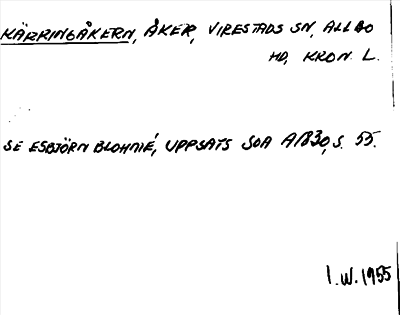 KÄRRINGÅKERN, ÅKER, VIRESTADS SN, ALLBO
HD, KRON. L.
SE ESBJÖRN BLOHMÉ, UPPSATS SOA AB30, S. 55.
I.W. 1955